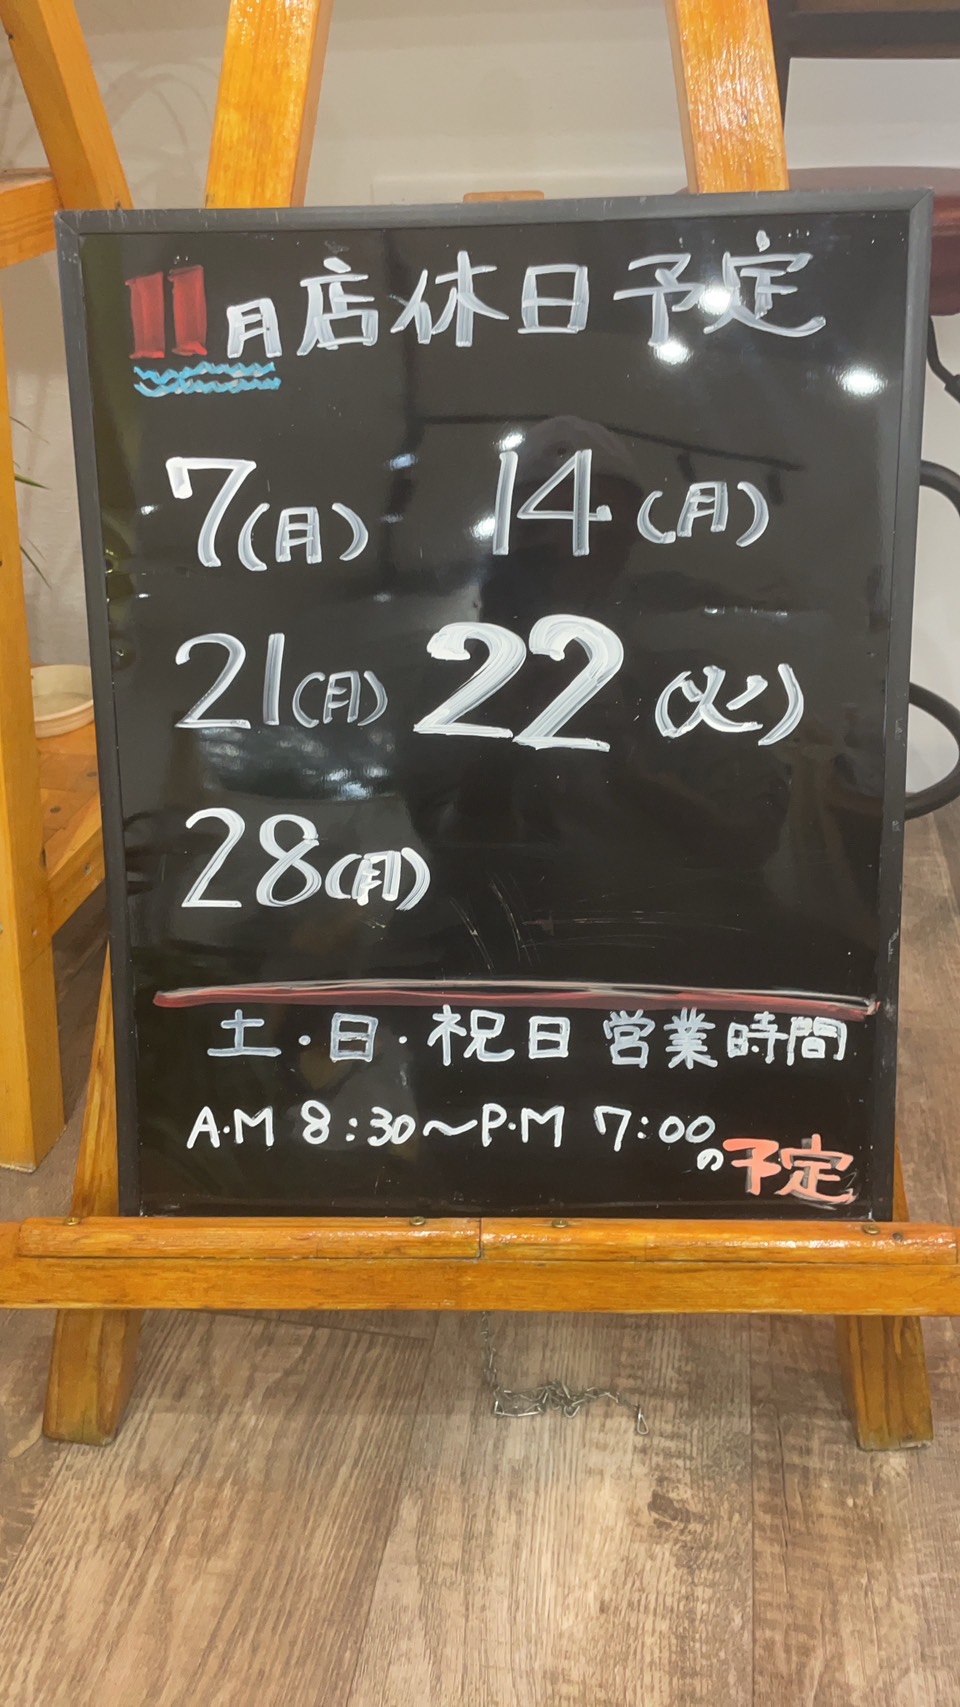 11月店休日予定
7(月) 14(月)
21(月) 22(火)
28(月)
土・日・祝日 営業時間
A・M 8:30〜P・M 7:00
の予定